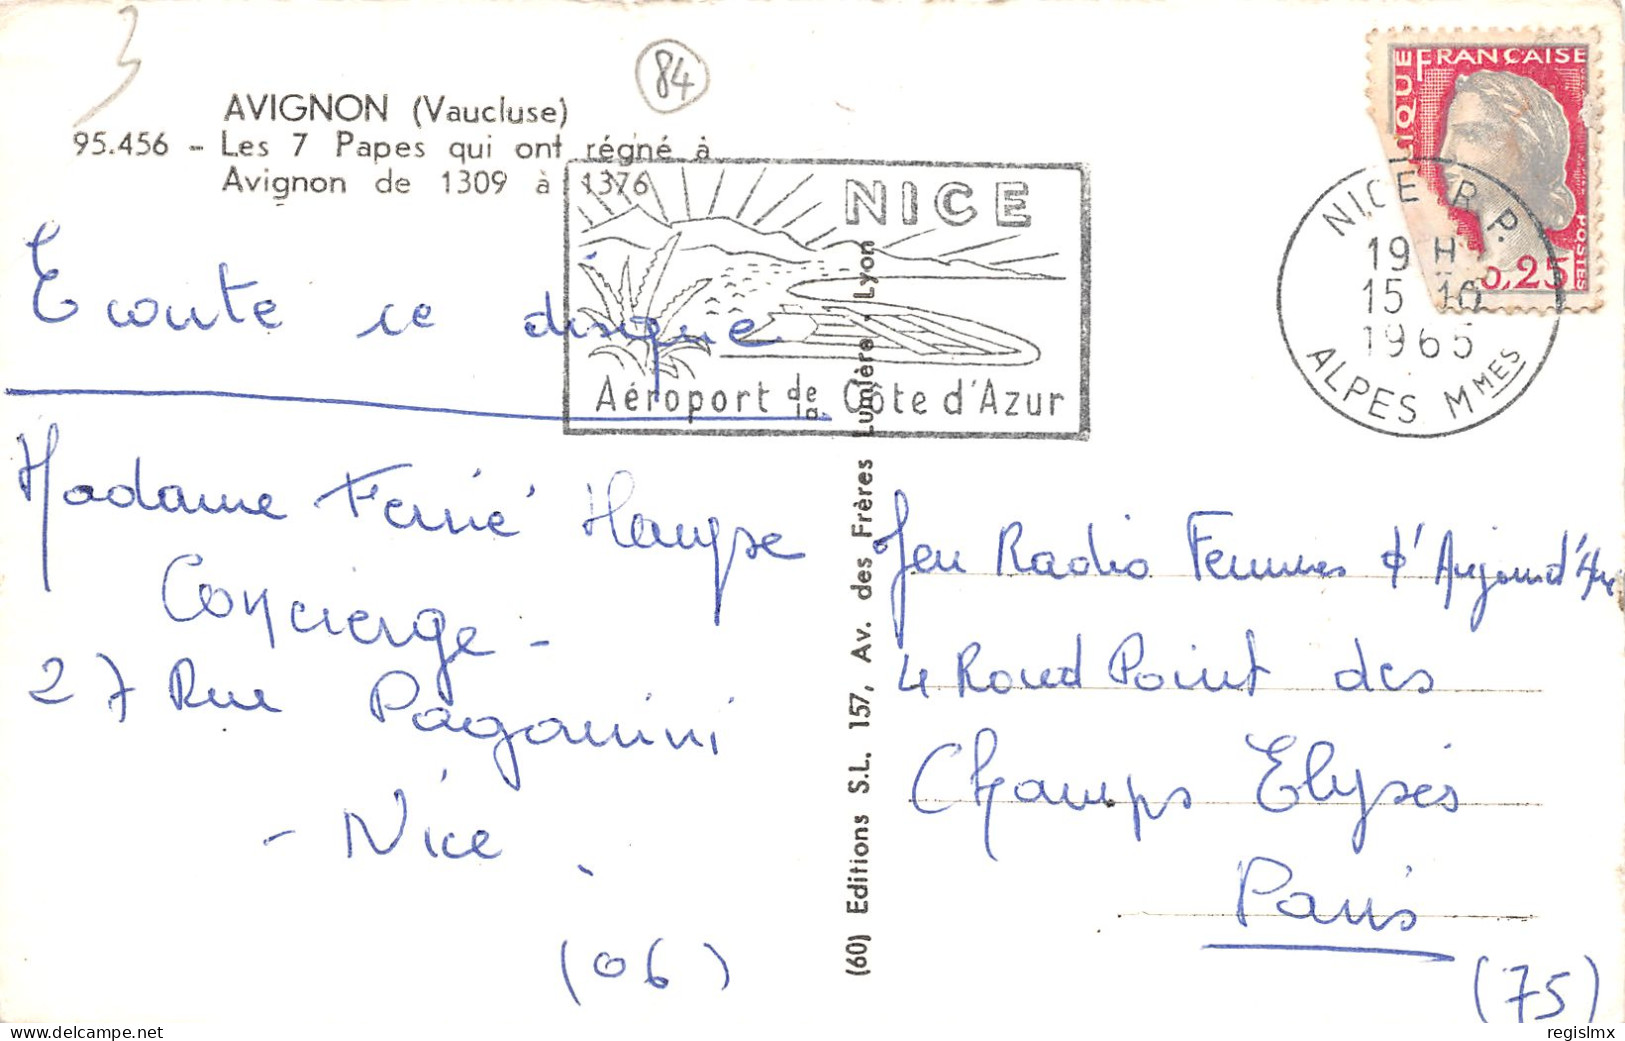 3
84
AVIGNON (Vaucluse)
95.456 - Les 7 Papes qui ont régné à
Avignon de 1309 à 1376
Ecoute ce disque
Madame Ferrié
Concierge -
27 Rue Paganini
- Nice .
(06)
NICE
Aéroport de la Côte d'Azur
(60) Editions S.L. 157, Av. des Frères Lumière, Lyon
IQUE FRANÇAISE
0,25
POSTES
NICE R.P.
19 H
15 10
1965
ALPES MMES
Jeu Radio Femmes d'Aujourd'hui
4 Rond Point des
Champs Elysés
Paris
(75)
regislmx
www.delcampe.net